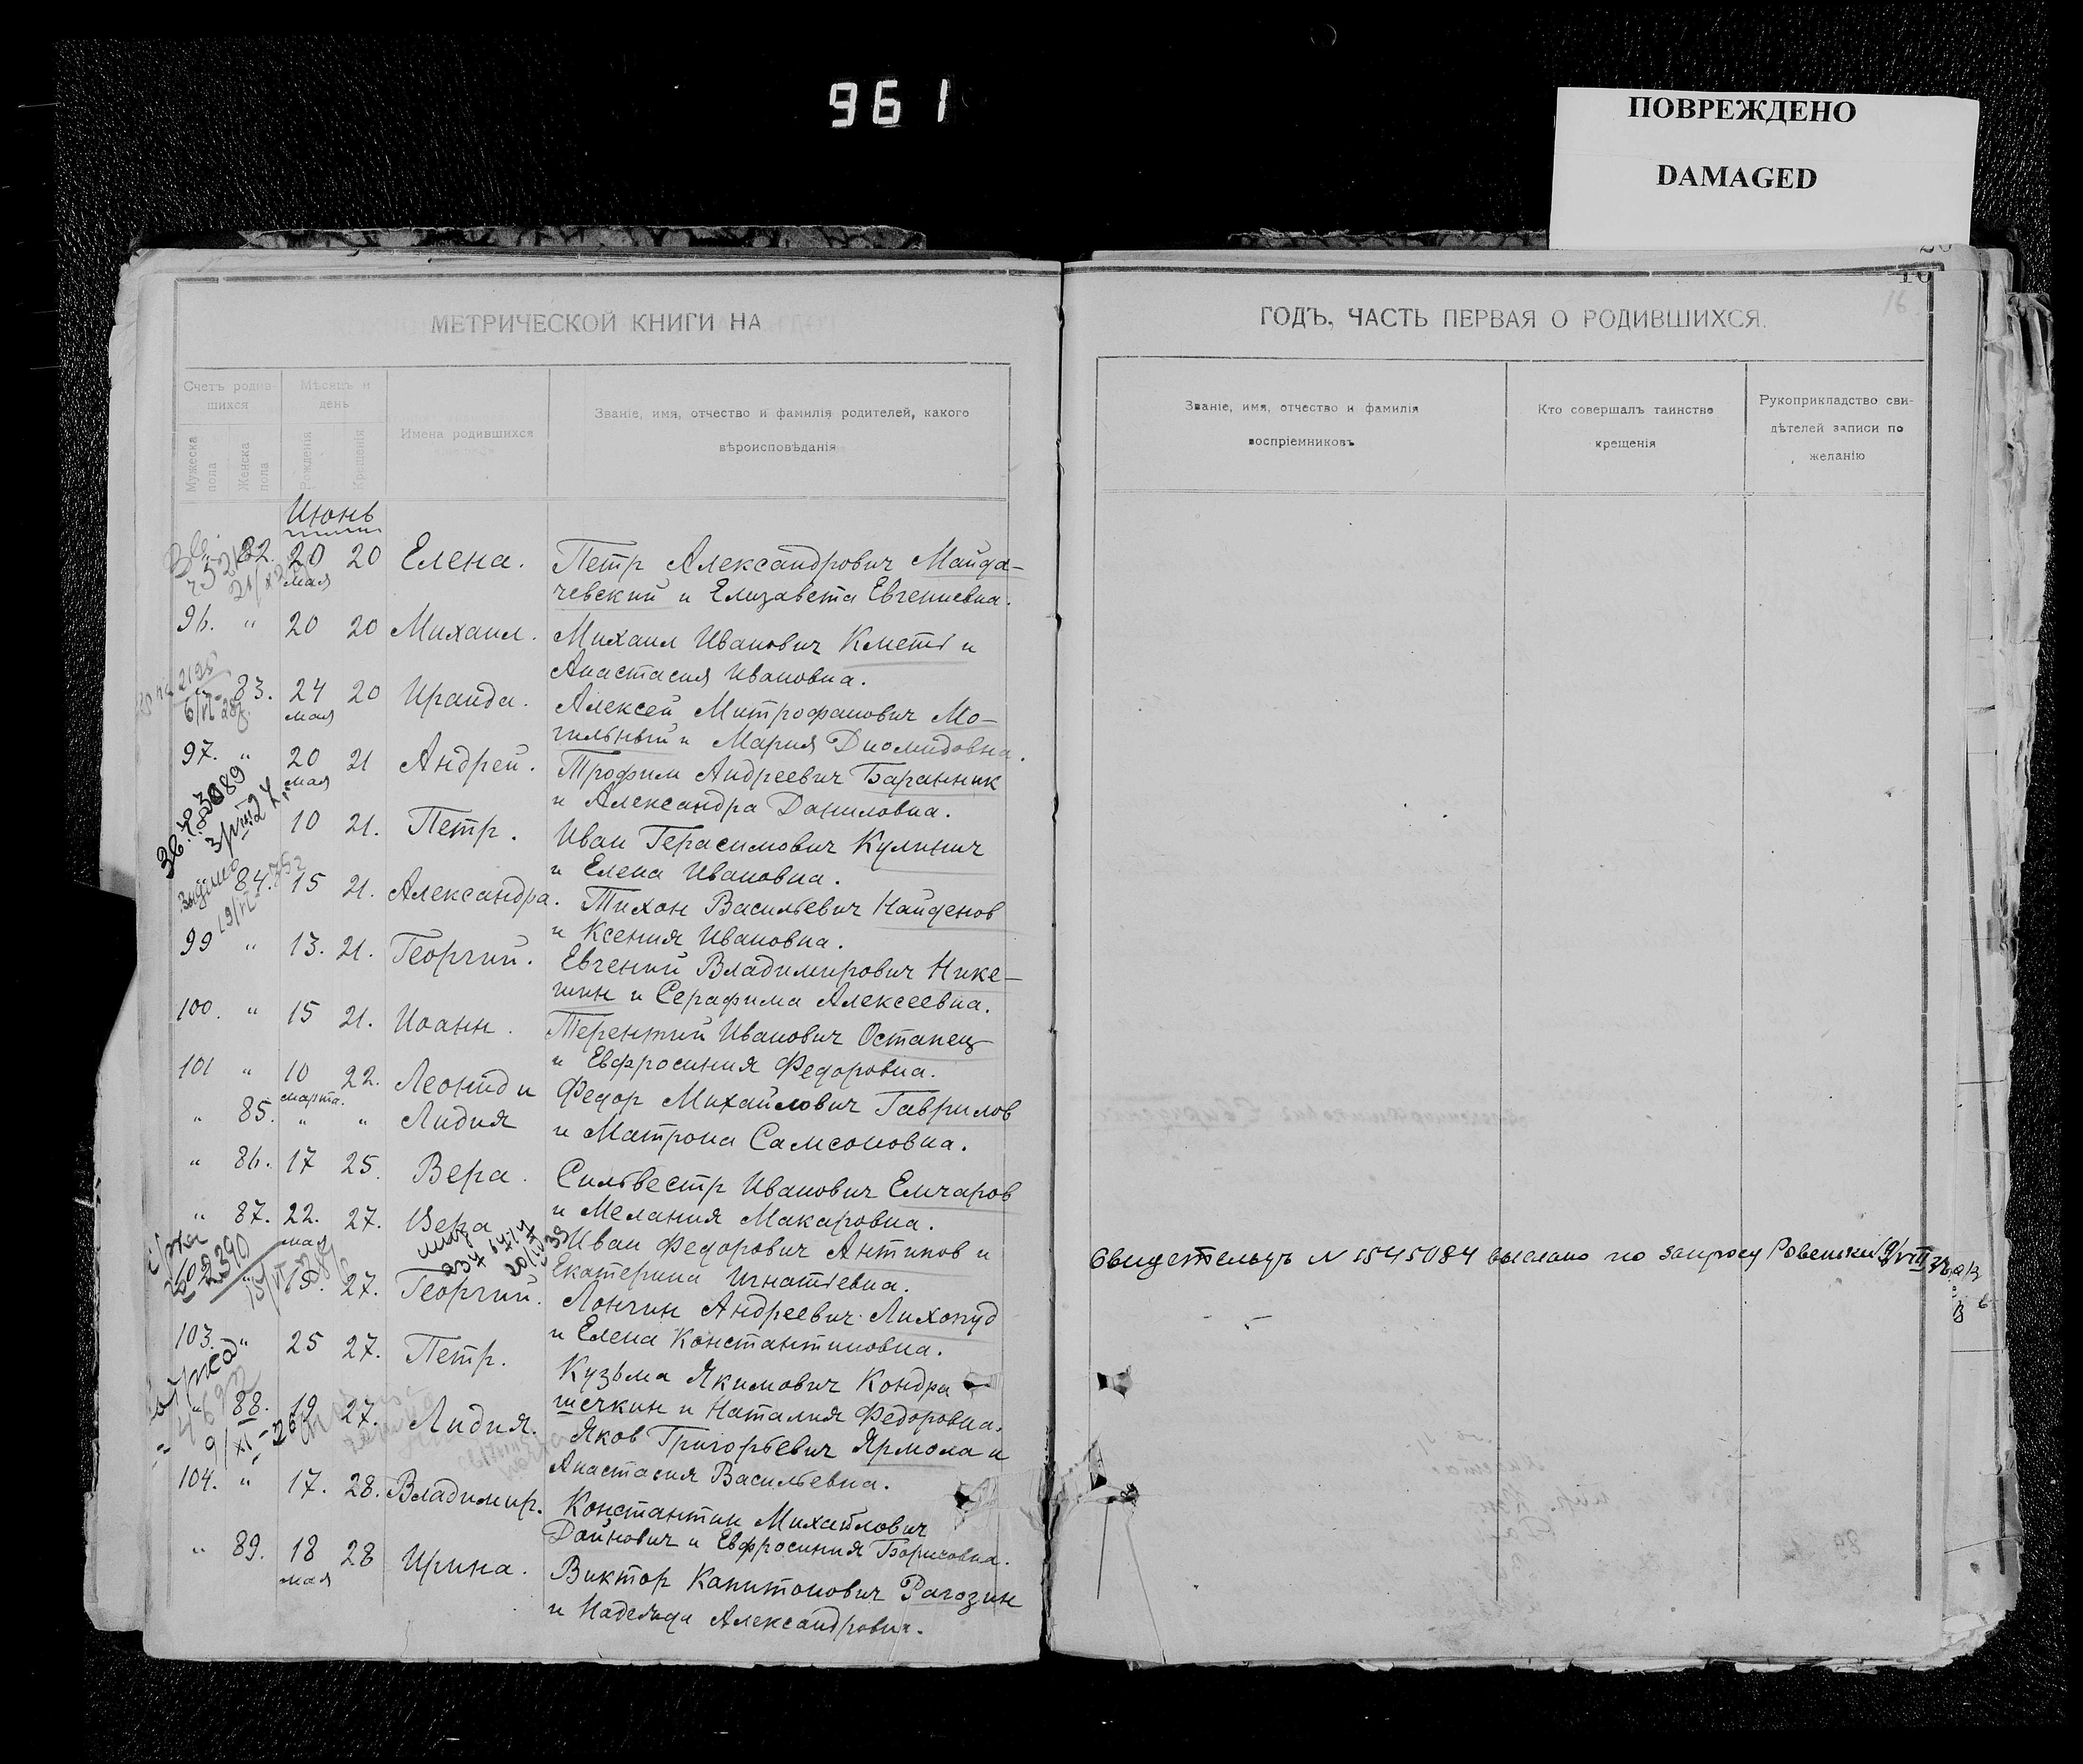 961
ПОВРЕЖДЕНО
DAMAGED
16
МЕТРИЧЕСКОЙ КНИГИ НА
Счетъ родив-
шихся
Мѣсяцъ и
день
Мужеска
пола
Женска
пола
Рожденія
Крещенія
Имена родившихся
Званіе, имя, отчество и фамилія родителей, какого
вѣроисповѣданія
Июнь
" 82. 20 20 Елена. Петр Александрович Майда-
мая
чевский и Елизавета Евгениевна.
96. " 20 20 Михаил. Михаил Иванович Кметь и
Анастасия Ивановна.
2125
" 83. 24 20 Ираида. Алексей Митрофанович Мо-
мая
гильный и Мария Диомидовна.
97. " 20 21 Андрей. Трофим Андреевич Баранник
мая
и Александра Даниловна.
10 21. Петр. Иван Герасимович Кулинич
и Елена Ивановна.
84. 15 21. Александра. Тихон Васильевич Найденов
и Ксения Ивановна.
99 " 13. 21. Георгий. Евгений Владимирович Нике-
шин и Серафима Алексеевна.
100. " 15 21. Иоанн. Терентий Иванович Остапец
и Евфросиния Федоровна.
101 " 10 22. Леонид и Федор Михайлович Гаврилов
марта.
" 85. " " Лидия и Матрона Самсоновна.
" 86. 17 25. Вера. Сильвестр Иванович Емчаров
и Мелания Макаровна.
" 87. 22. 27. Вера Иван Федорович Антипов и
мая
Екатерина Игнатьевна.
15. 27. Георгий. Лонгин Андреевич Лихопуд
и Елена Константиновна.
103. " 25 27. Петр. Кузьма Якимович Кондра
шечкин и Наталия Федоровна.
" 88. 19 27. Лидия. Яков Григорьевич Ярмола и
Анастасия Васильевна.
104. " 17. 28. Владимир. Константин Михайлович
Дойнович и Евфросиния Борисовна.
" 89. 18 28 Ирина. Виктор Капитонович Рагозин
мая
и Надежда Александровн.
ГОДЪ, ЧАСТЬ ПЕРВАЯ О РОДИВШИХСЯ.
Званіе, имя, отчество и фамилія
воспріемниковъ
Кто совершалъ таинство
крещенія
Рукоприкладство сви-
дѣтелей записи по
желанію
Свидетельст N 1545084 выслано по запросу